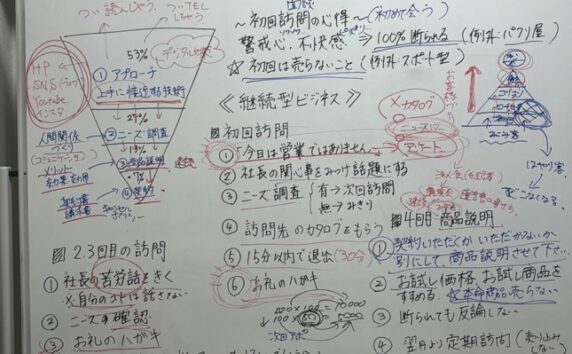 つい読んじゃう。
ついてもしちゃう。
53%
デジタル
HP
SNS
Youtube
インスタ
① アプローチ
上手に接近する技術
27%
人間関係
づくり
(コミュニケーション)
② ニーズ調査
13%
メリット
③ 商品説明
7%
④ 契約
〜初回訪問の心得〜(初めて会う)
警戒心・不快感 ⇒ 100%断られる (例外:パクリ屋)
☆ 初回は売らないこと (例外:スポット型)
《継続型ビジネス》
初回訪問
① 「今日は営業ではありません」
② 社長の関心事をみつけ話題にする
③ ニーズ調査 有→次回訪問
無→みきり
④ 訪問先のカタログをもらう
⑤ 15分以内で退出(30分)
⑥ お礼のハガキ
100×100=10000
次回アポ
×カタログ
ニュースレター
アンケート
はやり客
どこへなくなる。
2.3回目の訪問
① 社長の苦労話をきく
※自分のコトは話さない
② ニーズの確認
③ お礼のハガキ
4回目 商品説明
① 契約いただくか いただかないか
別にして商品説明させて下さい
② お試し価格、お試し商品を
すすめる 本命商品売らない
③ 断られても反論しない
④ 翌月より定期訪問(売り込み
しない)